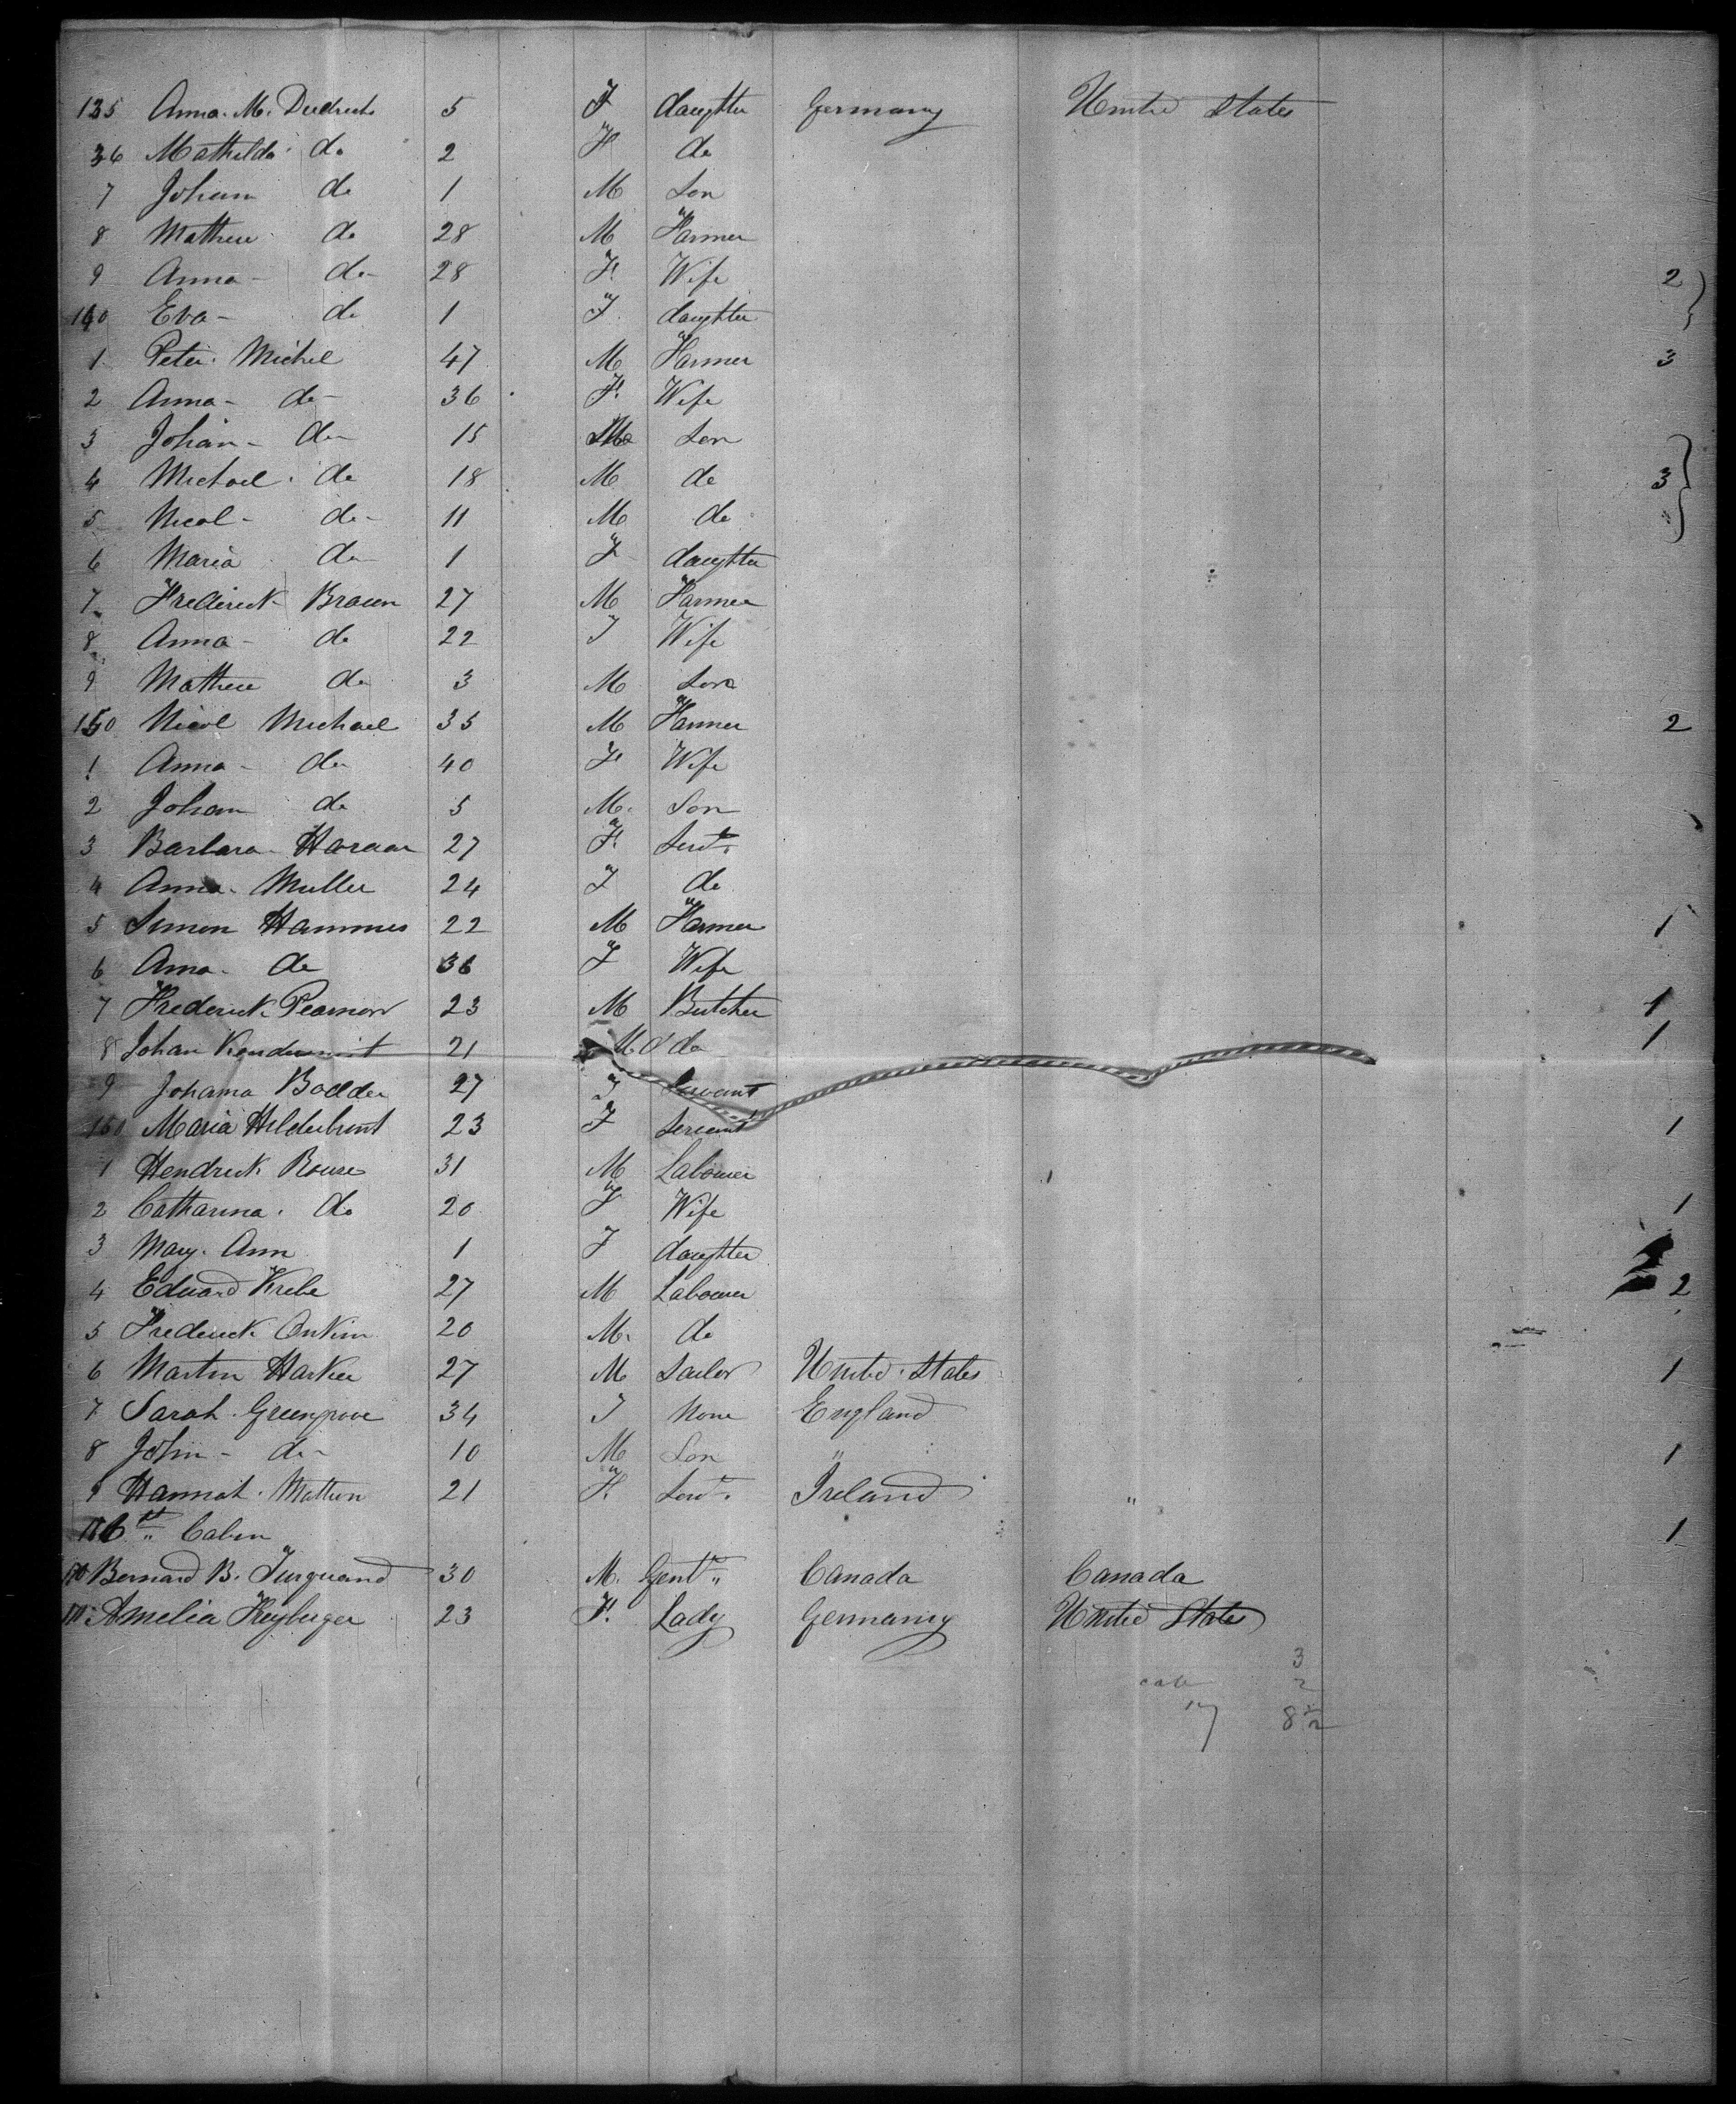 135 Anna. M. Diedrich 5 F daughter Germany United States
36 Mathilda do 2 F do
7 Johann do 1 M Son
8 Mathew do 28 M Farmer
9 Anna - do - 28 F Wife 2
140 Eva - do 1 F daughter
1 Peter Michel 47 M Farmer 3
2 Anna - do - 36 F. Wife
3 Johan - do - 15 M Son
4 Michael do 18 M do 3
5 Nicol - do - 11 M do
6 Maria do 1 F daughter
7 Frederick Braun 27 M Farmer
8 Anna - do 22 F Wife
9 Mathew do 3 M Son
150 Nicol Michael 35 M Farmer 2
1 Anna - do 40 F Wife
2 Johan do 5 M. Son
3 Barbara 27 F. Servt.
4 Anna Muller 24 F do
5 Simon Hammes 22 M Farmer 1
6 Anna do 36 F Wife
7 Frederick 23 M Butcher 1
8 Johan 21 M do 1
9 Johanna Bodden 27 F Servant
160 Maria Hilderbrant 23 F Servant 1
1 Hendrick Rouse 31 M Labourer
2 Catharina. do 20 F Wife 1
3 Mary. Ann 1 F daughter
4 Eduard Krebe 27 M Labourer 2
5 Frederick Onkin 20 M. do
6 Martin Harker 27 M Sailor United States 1
7 Sarah Greengrove 34 F None England
8 John - do - 10 M Son " 1
9 Hannah 21 F. Servt. Ireland "
1st Cabin 1
170 Bernard B. Turquand 30 M. Gentn. Canada Canada
171 Amelia Heyberger 23 F. Lady Germany United States
3
2
17 8 1/2